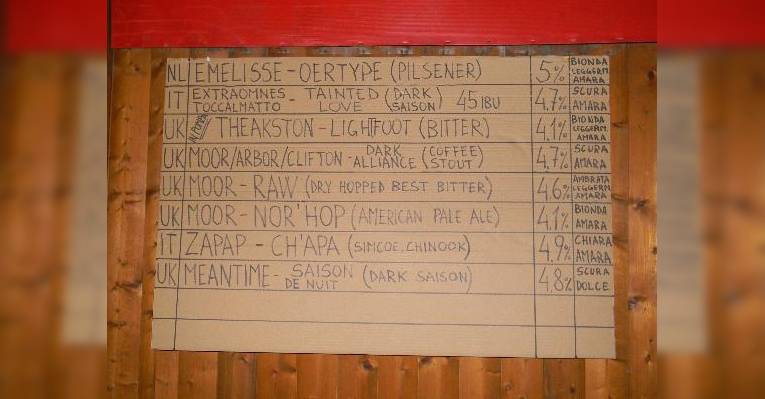 NL EMELISSE - OERTYPE (PILSENER) 5% BIONDA LEGGERM. AMARA
IT EXTRAOMNES TOCCALMATTO - TAINTED LOVE (DARK SAISON) 45 IBU 4,7% SCURA AMARA
UK THEAKSTON - LIGHTFOOT (BITTER) 4,1% BIONDA LEGGERM. AMARA
UK MOOR/ARBOR/CLIFTON - DARK ALLIANCE (COFFEE STOUT) 4,7% SCURA AMARA
UK MOOR - RAW (DRY HOPPED BEST BITTER) 4,6% AMBRATA LEGGERM. AMARA
UK MOOR - NOR'HOP (AMERICAN PALE ALE) 4,1% BIONDA AMARA
IT ZAPAP - CH'APA (SIMCOE, CHINOOK) 4,9% CHIARA AMARA
UK MEANTIME - SAISON DE NUIT (DARK SAISON) 4,8% SCURA DOLCE